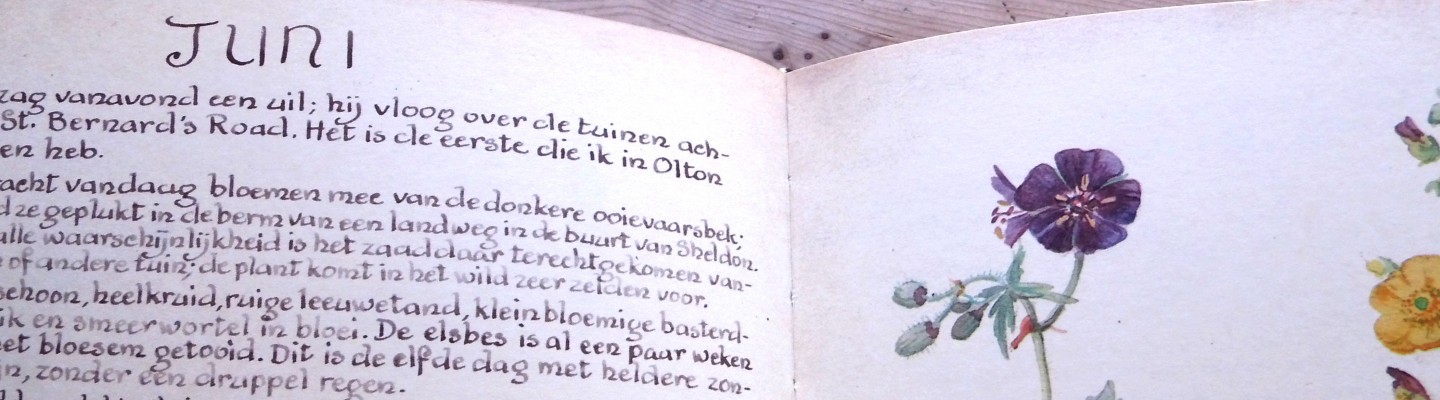 JUNI
zag vanavond een uil; hij vloog over de tuinen ach-
St. Bernard's Road. Het is de eerste die ik in Olton
en heb.
acht vandaag bloemen mee van de donkere ooievaarsbek;
d ze geplukt in de berm van een landweg in de buurt van Sheldon.
alle waarschijnlijkheid is het zaad daar terechtgekomen van-
e of andere tuin; de plant komt in het wild zeer zelden voor.
schoon, heelkruid, ruige leeuwetand, kleinbloemige basterd-
ik en smeerwortel in bloei. De elsbes is al een paar weken
et bloesem getooid. Dit is de elfde dag met heldere zon-
n, zonder een druppel regen.